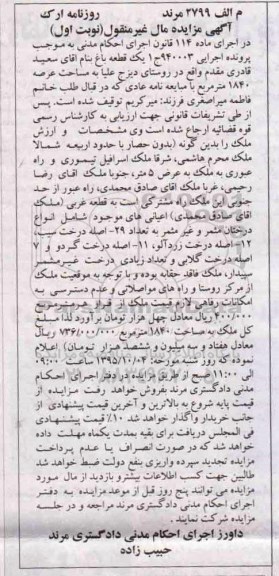 م الف ۲۷۹۹ مرند روزنامه ارک
آگهی مزایده مال غیرمنقول(نوبت اول)
در اجرای ماده ۱۱۴ قانون اجرای احکام مدنی به موجب
پرونده اجرایی ۹۴۰۰۰۳ج۱ یک قطعه باغ بنام آقای سعید
قادری مقدم واقع در روستای دیزج علیا به مساحت عرصه
۱۸۴۰ مترمربع با مبایعه نامه عادی که در قبال طلب خانم
فاطمه میراصغری فرزند: میرکریم توقیف شده است. پس
از طی تشریفات قانونی جهت ارزیابی به کارشناس رسمی
قوه قضائیه ارجاع شده است وی مشخصات و ارزش
ملک را بدین گونه (بدون حصار با حدود اربعه شمالا
ملک محرم هاشمی، شرقا ملک اسرافیل تیموری و راه
عبوری به ملک به عرض ۵ متر، جنوبا ملک آقای رضا
رحیمی، غربا ملک آقای صادق محمدی، راه عبور از حد
جنوبی این ملک راه مشترکی است به قطعه غربی (ملک
آقای صادق محمدی) اعیانی های موجود شامل انواع
درختان مثمر و غیر مثمر به تعداد ۲۹- اصله درخت سیب
۱۲-اصله درخت زردآلو، ۱۱-اصله درخت گردو و ۷
اصله درخت گلابی و تعداد زیادی درخت غیرمثمر
سپیدار، ملک فاقد حقابه بوده و با توجه به موقعیت ملک
از مرکز روستا و راه های مواصلاتی و عدم دسترسی به
امکانات رفاهی لازم قیمت ملک از قرار هر مترمربع
۴۰۰/۰۰۰ ریال معادل چهل هزار تومان برآورد لذا مبلغ
کل ملک به مساحت ۱۸۴۰ مترمربع ۷۳۶/۰۰۰/۰۰۰ ریال
معادل هفتاد و سه میلیون و ششصد هزار تومان) اعلام
نموده که روز سه مورخه: ۱۳۹۵/۱۰/۰۴ از ساعت ۰۹:۰۰
الی ۱۱:۰۰ صبح از طریق مزایده در دفتر اجرای احکام
مدنی دادگستری مرند بفروش خواهد رفت مزایده از
قیمت پایه شروع به بالاترین و آخرین قیمت پیشنهادی از
جانب خریدار واگذار خواهد شد ۱۰٪ قیمت پیشنهادی
فی المجلس دریافت برای بقیه بمدت یکماه مهلت داده
خواهد شد که در صورت انصراف یا عدم پرداخت
مزایده تجدید سپرده واریزی بنفع دولت ضبط خواهد شد
طالبین جهت کسب اطلاعات بیشتر و بازدید از مال مورد
مزایده می توانند پنج روز قبل از موعد مزایده به دفتر
اجرای احکام مدنی دادگستری مرند مراجعه و در جلسه
مزایده شرکت نمایند.
دادورز اجرای احکام مدنی دادگستری مرند
حبیب زاده